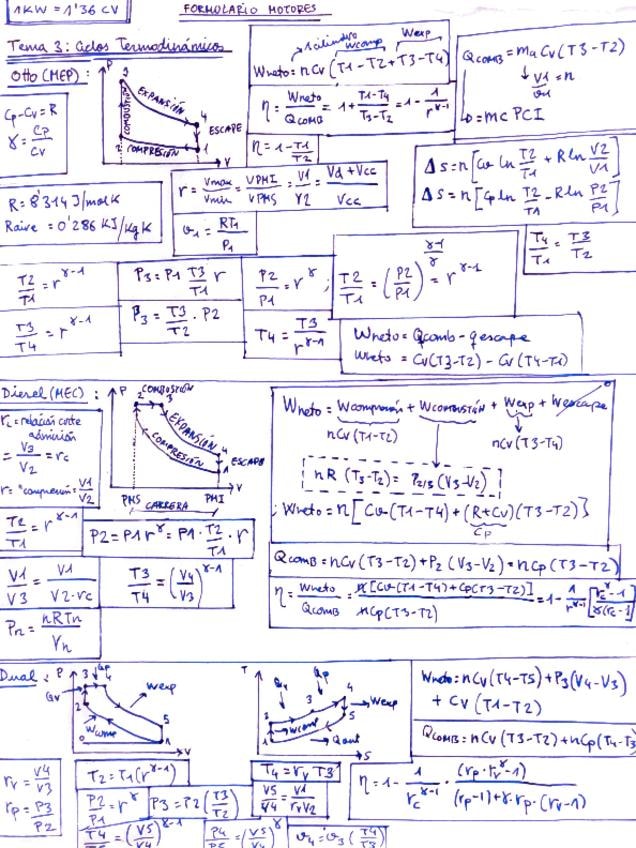 1KW = 1'36 CV
FORMULARIO MOTORES
Tema 3: Ciclos Termodinámicos
Otto (MEP):
P
3
EXPANSIÓN
COMBUSTIÓN
4
ESCAPE
2
COMPRESIÓN
1
V
Cp-Cv=R
γ = Cp/Cv
1 cilindro
Wcomp
Wexp
Wneto = nCv(T1-T2+T3-T4)
η = Wneto/Qcomb = 1+ (T1-T4)/(T3-T2) = 1- 1/r^(γ-1)
η = 1- T1/T2
QCOMB = ma Cv(T3-T2)
V1/v1 = n
= mc PCI
Δs = n[Cv ln T2/T1 + R ln V2/V1]
Δs = n[Cp ln T2/T1 - R ln P2/P1]
R = 8'314 J/mol K
Raire = 0'286 KJ/kg K
r = Vmax/Vmin = VPMI/VPMS = V1/V2 = (Vd+Vcc)/Vcc
v1 = RT1/P1
T4/T1 = T3/T2
T2/T1 = r^(γ-1)
P3 = P1 T3/T1 r
P2/P1 = r^γ ; T2/T1 = (P2/P1)^((γ-1)/γ) = r^(γ-1)
T3/T4 = r^(γ-1)
P3 = T3/T2 · P2
T4 = T3/r^(γ-1)
Wneto = Qcomb - qescape
Wneto = Cv(T3-T2) - Cv(T4-T1)
Diesel (MEC):
P
COMBUSTIÓN
2
3
EXPANSIÓN
COMPRESIÓN
4
ESCAPE
1
V
PMS
CARRERA
PMI
rc = relación corte
admisión
= V3/V2 = rc
r = "compresión" = V1/V2
Wneto = Wcompresión + Wcombustión + Wexp + Wescape
0
nCv(T1-T2)
nCv(T3-T4)
nR (T3-T2) = P2/3 (V3-V2)
Wneto = n[Cv(T1-T4) + (R+Cv)(T3-T2)]
Cp
T2/T1 = r^(γ-1)
P2 = P1 r^γ = P1 · T2/T1 · r
V1/V3 = V1/(V2·rc)
T3/T4 = (V4/V3)^(γ-1)
QCOMB = nCv(T3-T2) + P2 (V3-V2) = nCp(T3-T2)
η = Wneto/QCOMB = n[Cv(T1-T4)+Cp(T3-T2)]/nCp(T3-T2) = 1- 1/r^(γ-1) [(rc^γ-1)/(γ(rc-1))]
Pn = nRTn/Vn
Dual:
P
Qp
3
4
Qv
Wexp
2
Wcomp
5
1
V
T
Qv
Qp
4
3
Wexp
2
Wcomp
5
1
Qout
S
Wneto = nCv(T4-T5) + P3(V4-V3)
+ Cv(T1-T2)
QCOMB = nCv(T3-T2) + nCp(T4-T3
rv = V4/V3
rp = P3/P2
T2 = T1(r^(γ-1))
T4 = rv T3
P2/P1 = r^γ
P3 = P2(T3/T2)
V5/V4 = V1/(rv V2)
η = 1 - 1/rc^(γ-1) · (rp·rv^γ-1)/((rp-1)+γ·rp·(rv-1))
T4/T5 = (V5/V4)^(γ-1)
P4/P5 = (V5/V4)^γ
v4 = v3 (T4/T3)